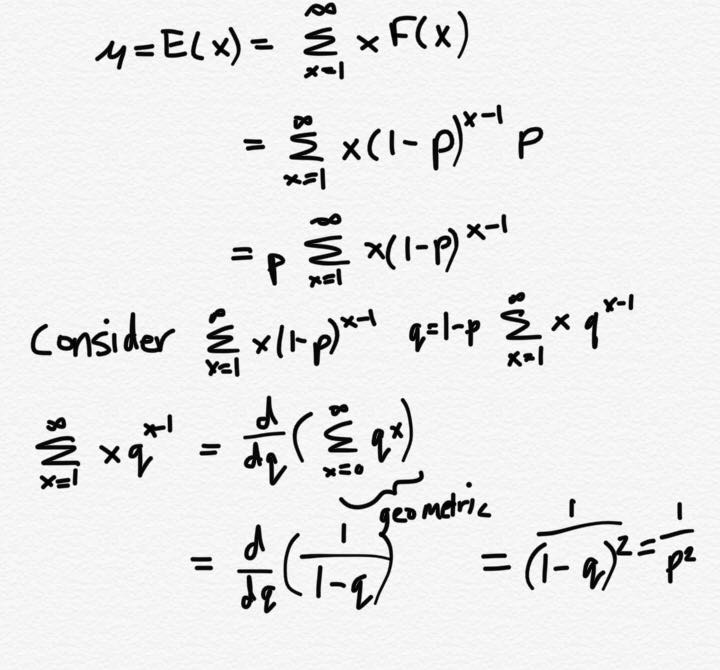 μ = E(x) = ∑_{x=1}^{∞} x F(x)
= ∑_{x=1}^{∞} x(1-p)^{x-1} p
= p ∑_{x=1}^{∞} x(1-p)^{x-1}
Consider ∑_{x=1}^{∞} x(1-p)^{x-1} q=1-p ∑_{x=1}^{∞} x q^{x-1}
∑_{x=1}^{∞} x q^{x-1} = d/dq ( ∑_{x=0}^{∞} q^x )
geometric
= d/dq ( 1/(1-q) ) = 1/(1-q)^2 = 1/p^2